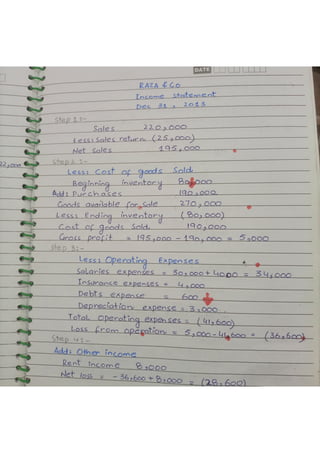 DATE
RAZA & Co
Income statement
Dec 31, 2013
Step 1:-
Sales 220,000
Less: Sales return (25,000)
Net sales 195,000
Step 2:-
Less: Cost of goods Sold
Beginning inventory 80,000
Add: Purchases 190,000
Goods available for sale 270,000
Less: Ending inventory (80,000)
Cost of goods Sold 190,000
Gross profit = 195,000 - 190,000 = 5,000
Step 3:-
Less: Operating Expenses
Salaries expenses = 30,000 + 4000 = 34,000
Insurance expenses = 4,000
Debts expense = 600
Depreciation expense = 3,000.
Total operating expenses = (41,600)
Loss from operation = 5,000 - 41,600 = (36,600)
Step 4:-
Add: Other income
Rent income 8,000
Net loss = -36,600 + 8,000 = (28,600)